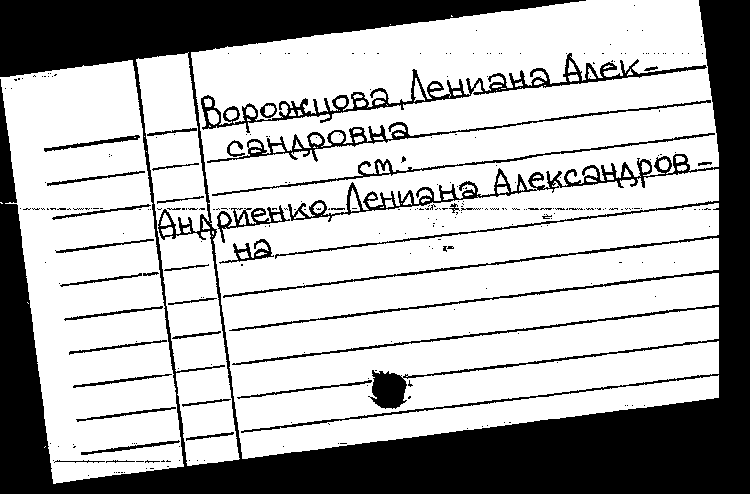 Ворожцова, Лениана Алек-
сандровна
см:
Андриенко, Лениана Александров-
на